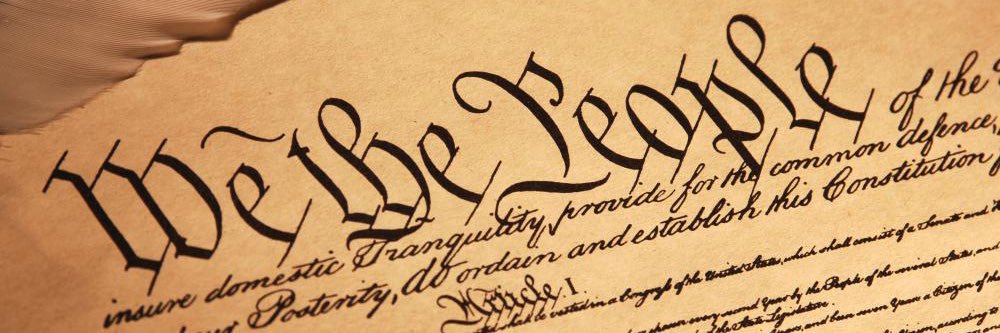 We the People of the
insure domestic Tranquility, provide for the common defence,
our Posterity, do ordain and establish this Constitution
Article I.
vested in a Congress of the United States, which shall consist of a Senate and
chosen every second Year by the People of the several States, and
of the State Legislature.
and been seven Years a Citizen of the
according to